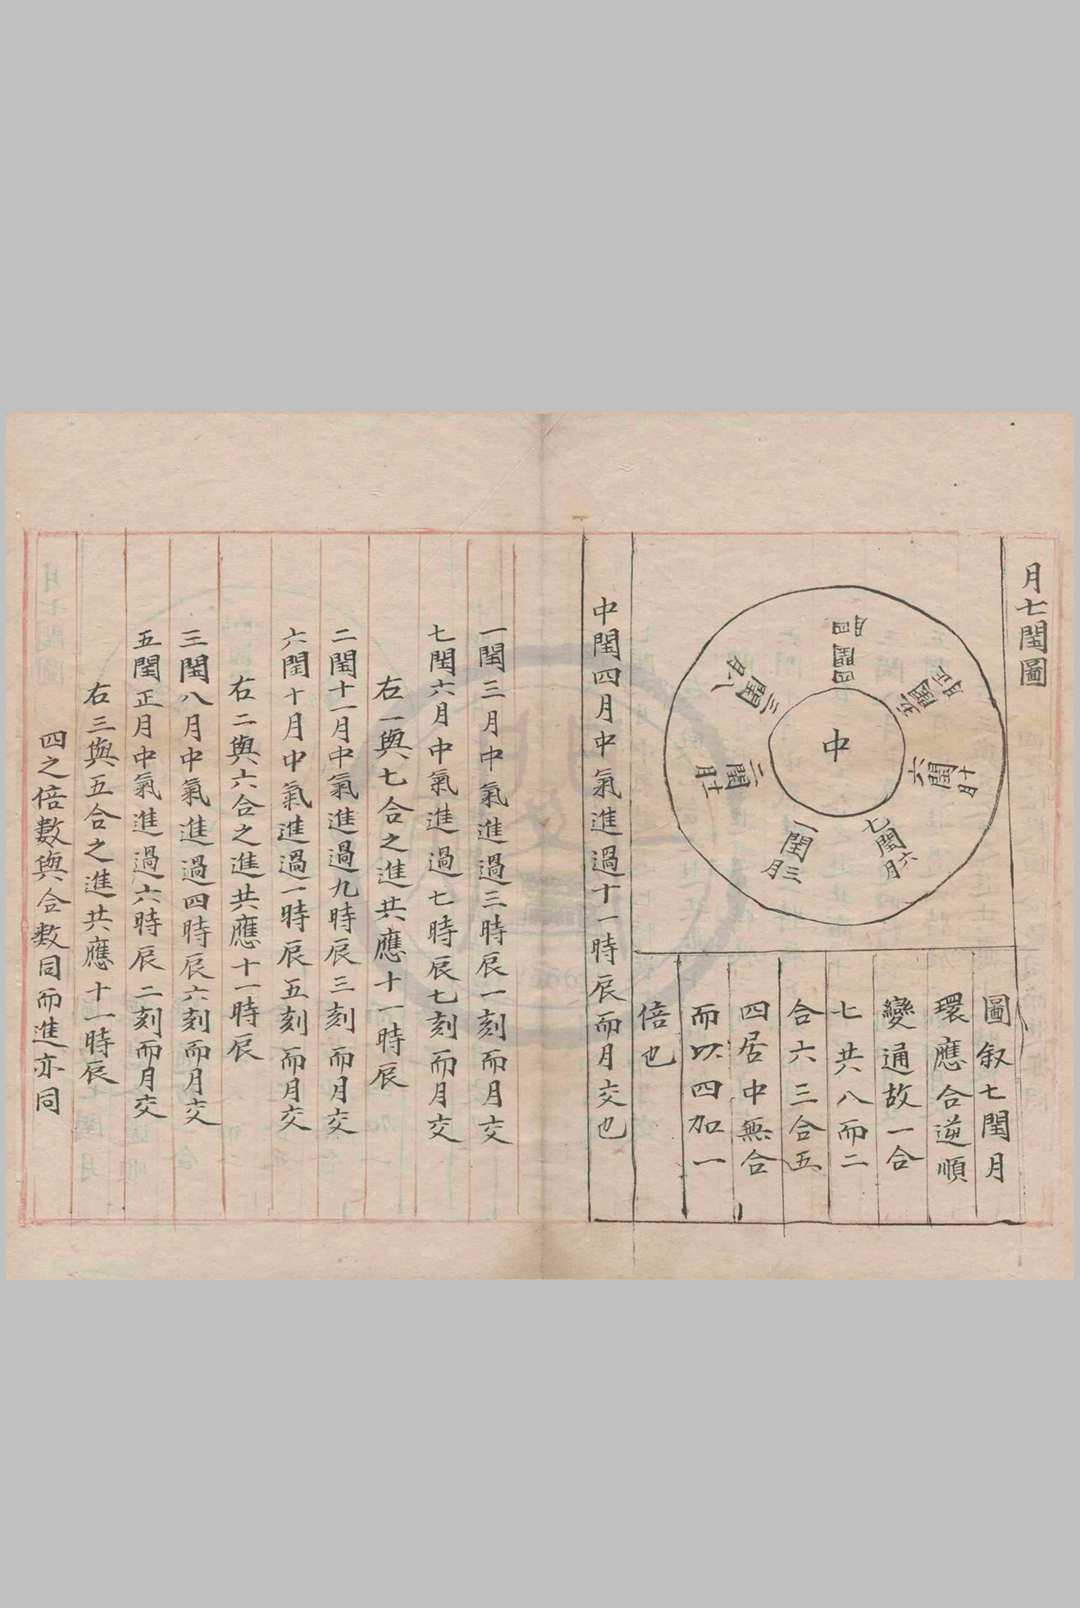 月七閏圖
四閏四月
五閏正月
六閏十月
七閏六月
一閏三月
二閏十一月
三閏八月
中
圖叙七閏月
環應合逆順
變通故一合
七共八而二
合六三合五
四居中無合
而以四加一
倍也
中閏四月中氣進過十一時辰而月交也
一閏三月中氣進過三時辰一刻而月交
七閏六月中氣進過七時辰七刻而月交
右一與七合之進共應十一時辰
二閏十一月中氣進過九時辰三刻而月交
六閏十月中氣進過一時辰五刻而月交
右二與六合之進共應十一時辰
三閏八月中氣進過四時辰六刻而月交
五閏正月中氣進過六時辰二刻而月交
右三與五合之進共應十一時辰
四之倍數與合數同而進亦同